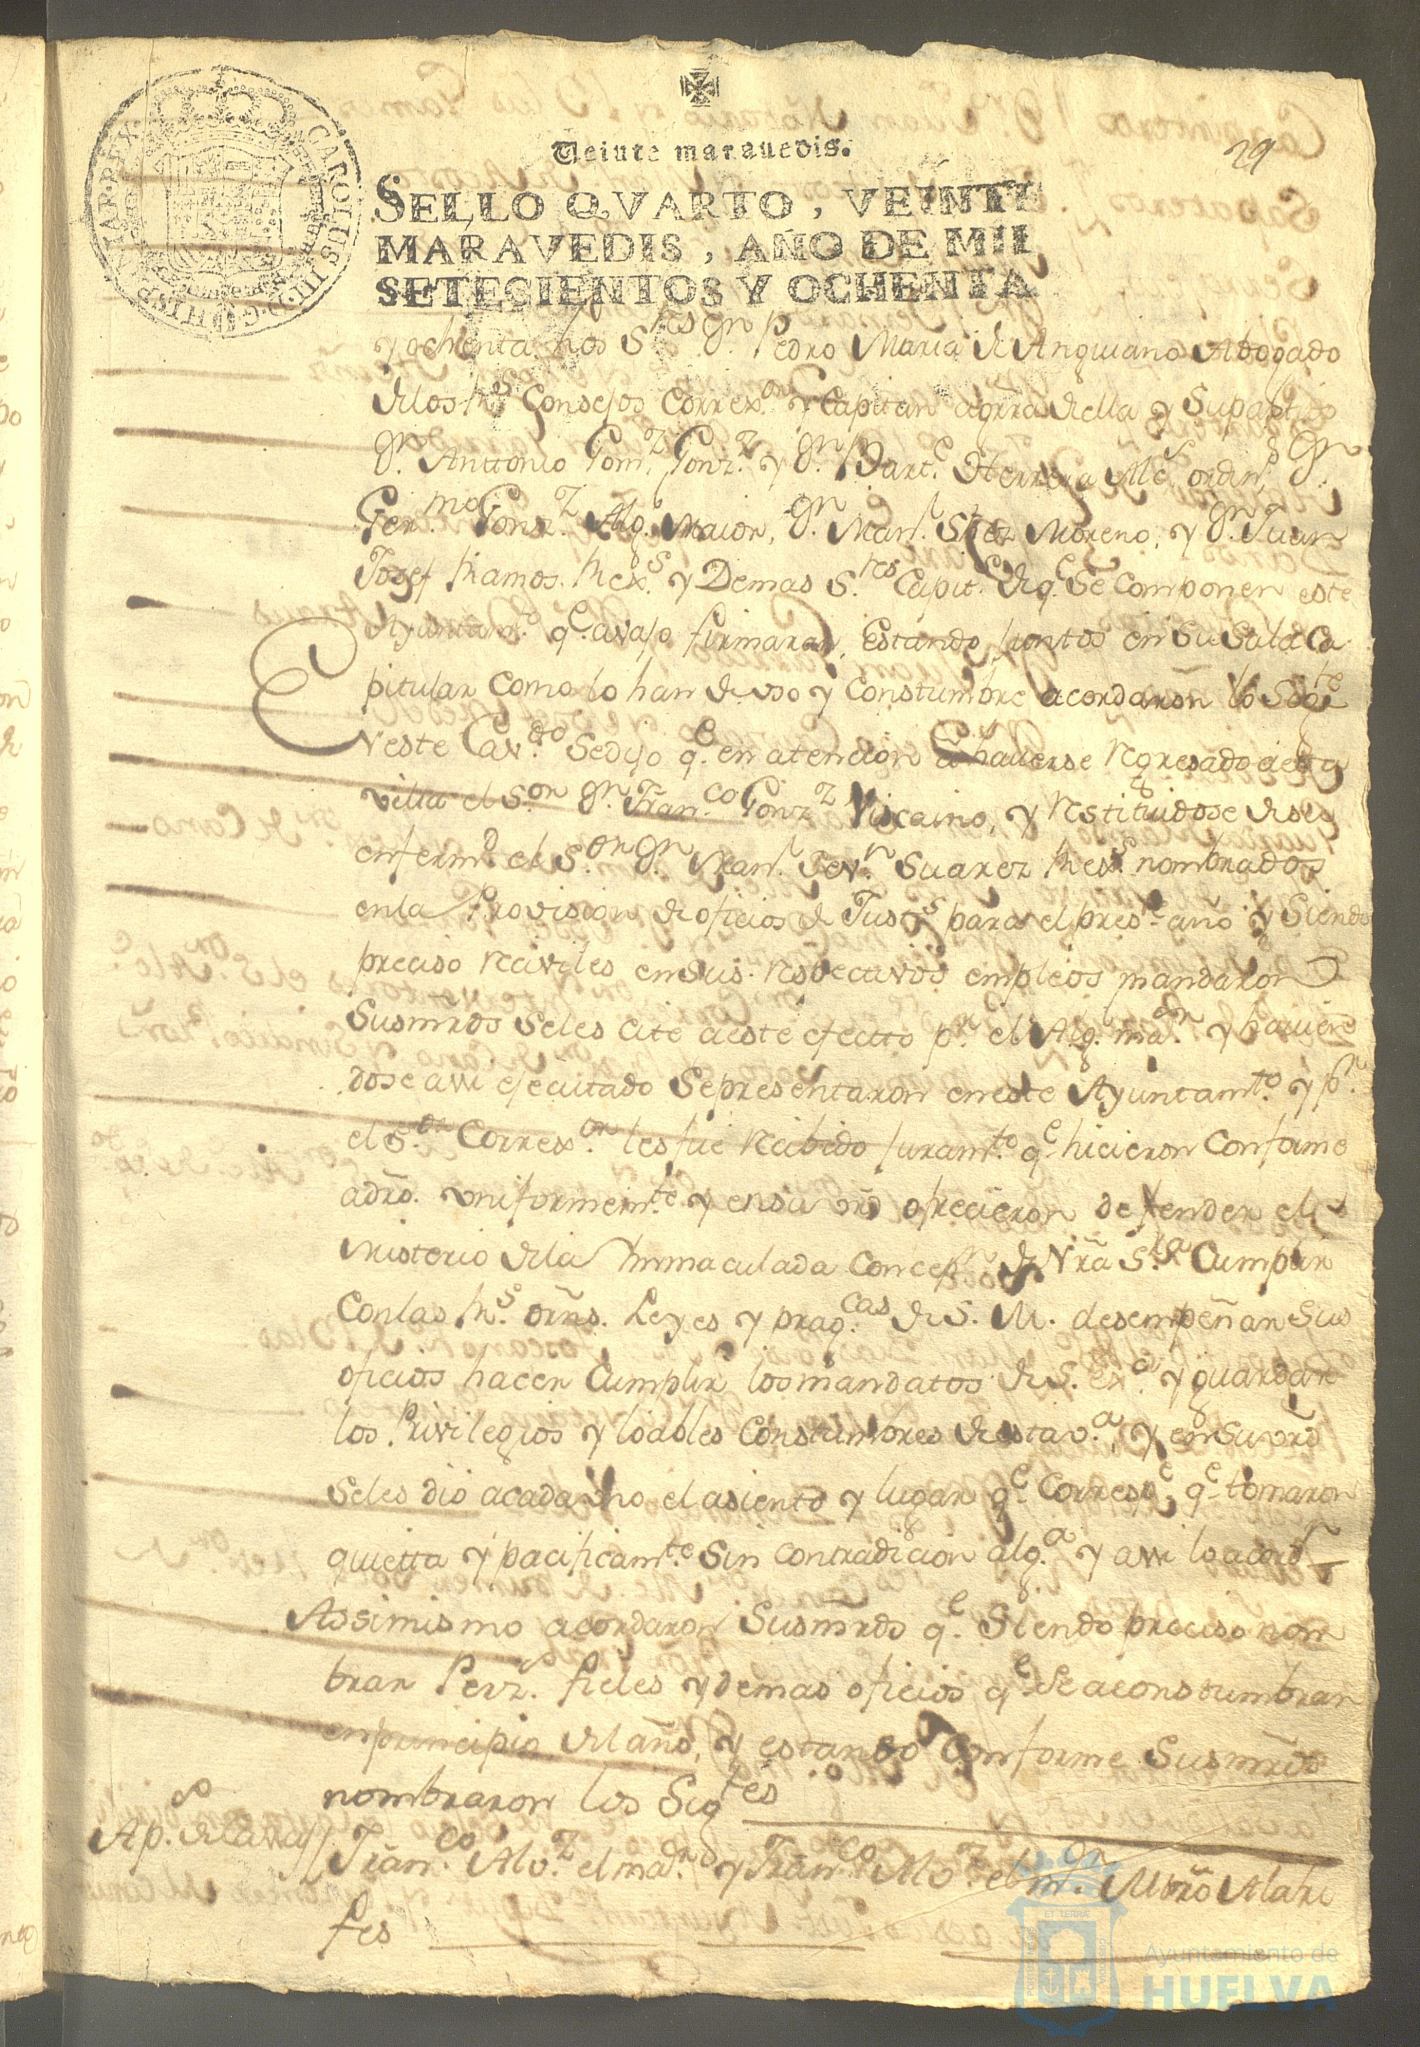 29
CAROLUS III D G HISPANIAR REX
Veinte maravedis.
SELLO QVARTO, VEINTE
MARAVEDIS, AÑO DE MIL
SETECIENTOS Y OCHENTA
y ochenta los S.res Dn. Pedro Maria de Anguiano Abogado
de los Rs. Consejos Correx.or y Capitan aGrra de ella y Supartido
Dn. Anttonio Gom.z Gonz.z y Dn. Bart.e de Herrera Alc.s ordin.s Dn.
Ger.mo Gonz.z Alg.l Maior, Dn. Man.l Shez Moreno, y Dn. Juan
Josef Ramos Rex.s y Demas S.res Capit.s de q.e Se Componen este
Ayuntam.to q.e avajo firmaran, Estando Juntos en Su Sala Ca
pitular como lo han de uso y Constumbre acordaron lo Sig.te
En este Cav.do Se dijo q.e en atencion a haverse regresado a esta
villa el S.or Dn. Fran.co Gonz.z Viscaino, y restituidose de su
enferm.d el S.or Dn. Man.l Suarez Rex.s nombrados
en la Provision de oficios de Just.s para el pres.te año y Siendo
preciso recivirles en Sus respectivos empleos mandaron
Susmrds Seles cite a este efecto p.r el Alg.l ma.or y havien
dose assi ejecutado Sepresentaron en este Ayuntam.to y p.r
el S.or Correx.or les fue recibido Juram.to q.e hicieron Conforme
adro. uniformem.te y en su vrd ofrecieron defender el
misterio de la Immaculada Concep.n de Nra S.ra Cumplir
Con las Rs. orns. Leyes y prag.cas de S. M. desempeñar Sus
oficios hacer Cumplir los mandatos de S. Ex.a y guardar
los Privilegios y loables Constumbres de esta v.a, y en Su vrd
Seles dio acada uno el asiento y lugar q.e Corresp.e q.e tomaron
quietta y pacificam.te Sin contradicion alg.a y assi lo acord.n
Assimismo acordaron Susmrds q.e Siendo preciso nom
brar Perz. fieles y demas oficios q.e Se aconstumbran
en principio del año, y estando Conforme Susmrds
nombraron los Sig.tes
Fran.co Alv.z el ma.or y Fran.co Alv.z el m.or Mtro Alari
fes
Ayuntamiento de
HUELVA